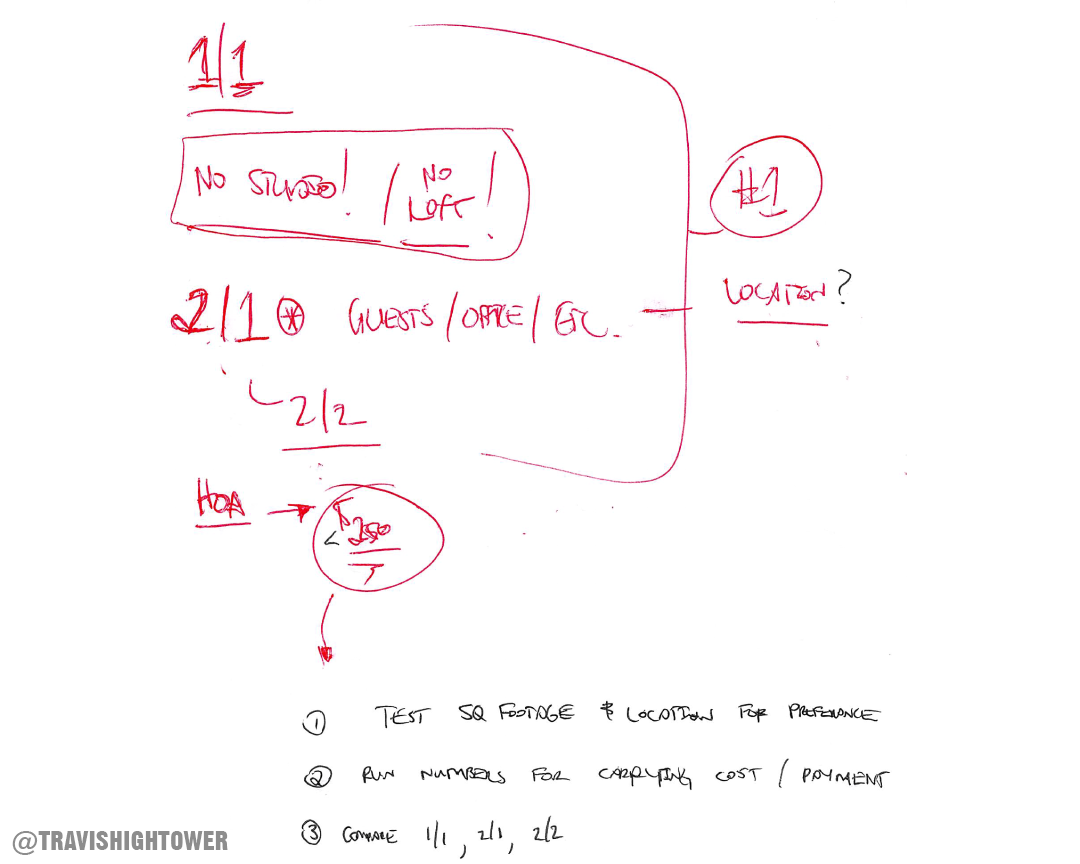 1/1
NO STUDIO! / NO LOFT!
#1
LOCATION?
2/1 * GUESTS/OFFICE/ETC.
2/2
HOA → < $250
① TEST SQ FOOTAGE & LOCATION FOR PREFERANCE
② RUN NUMBERS FOR CARRYING COST / PAYMENT
③ COMPARE 1/1, 2/1, 2/2
@TRAVISHIGHTOWER